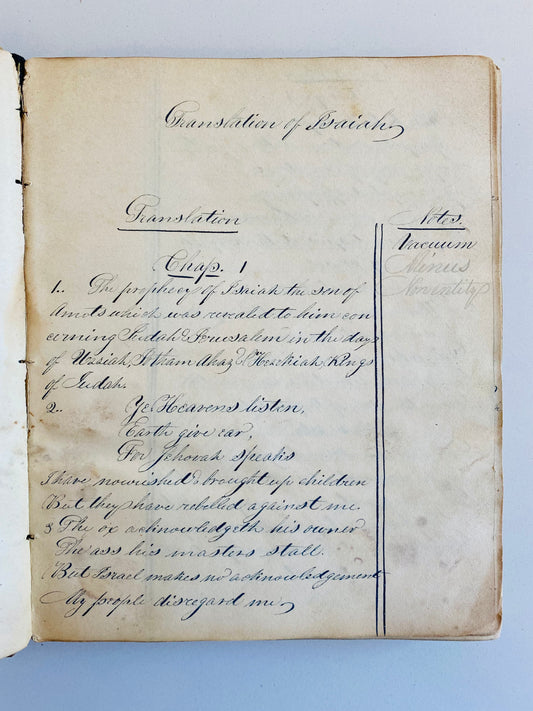 Translation of Isaiah
Translation
Notes.
Vacuum
Minus
Nonentity
Chap. 1
1.. The prophecy of Isaiah the son of
Amots which was revealed to him con
cerning Judah & Jerusalem in the days
of Uzziah, Jotham Ahaz & Hezekiah, Kings
of Judah.
2.. Ye Heavens listen,
Earth give ear,
For Jehovah speaks
I have nourished & brought up children
But they have rebelled against me.
3 The ox acknowledgeth his owner
The ass his masters stall.
But Israel makes no acknowledgement
My people disregard me,